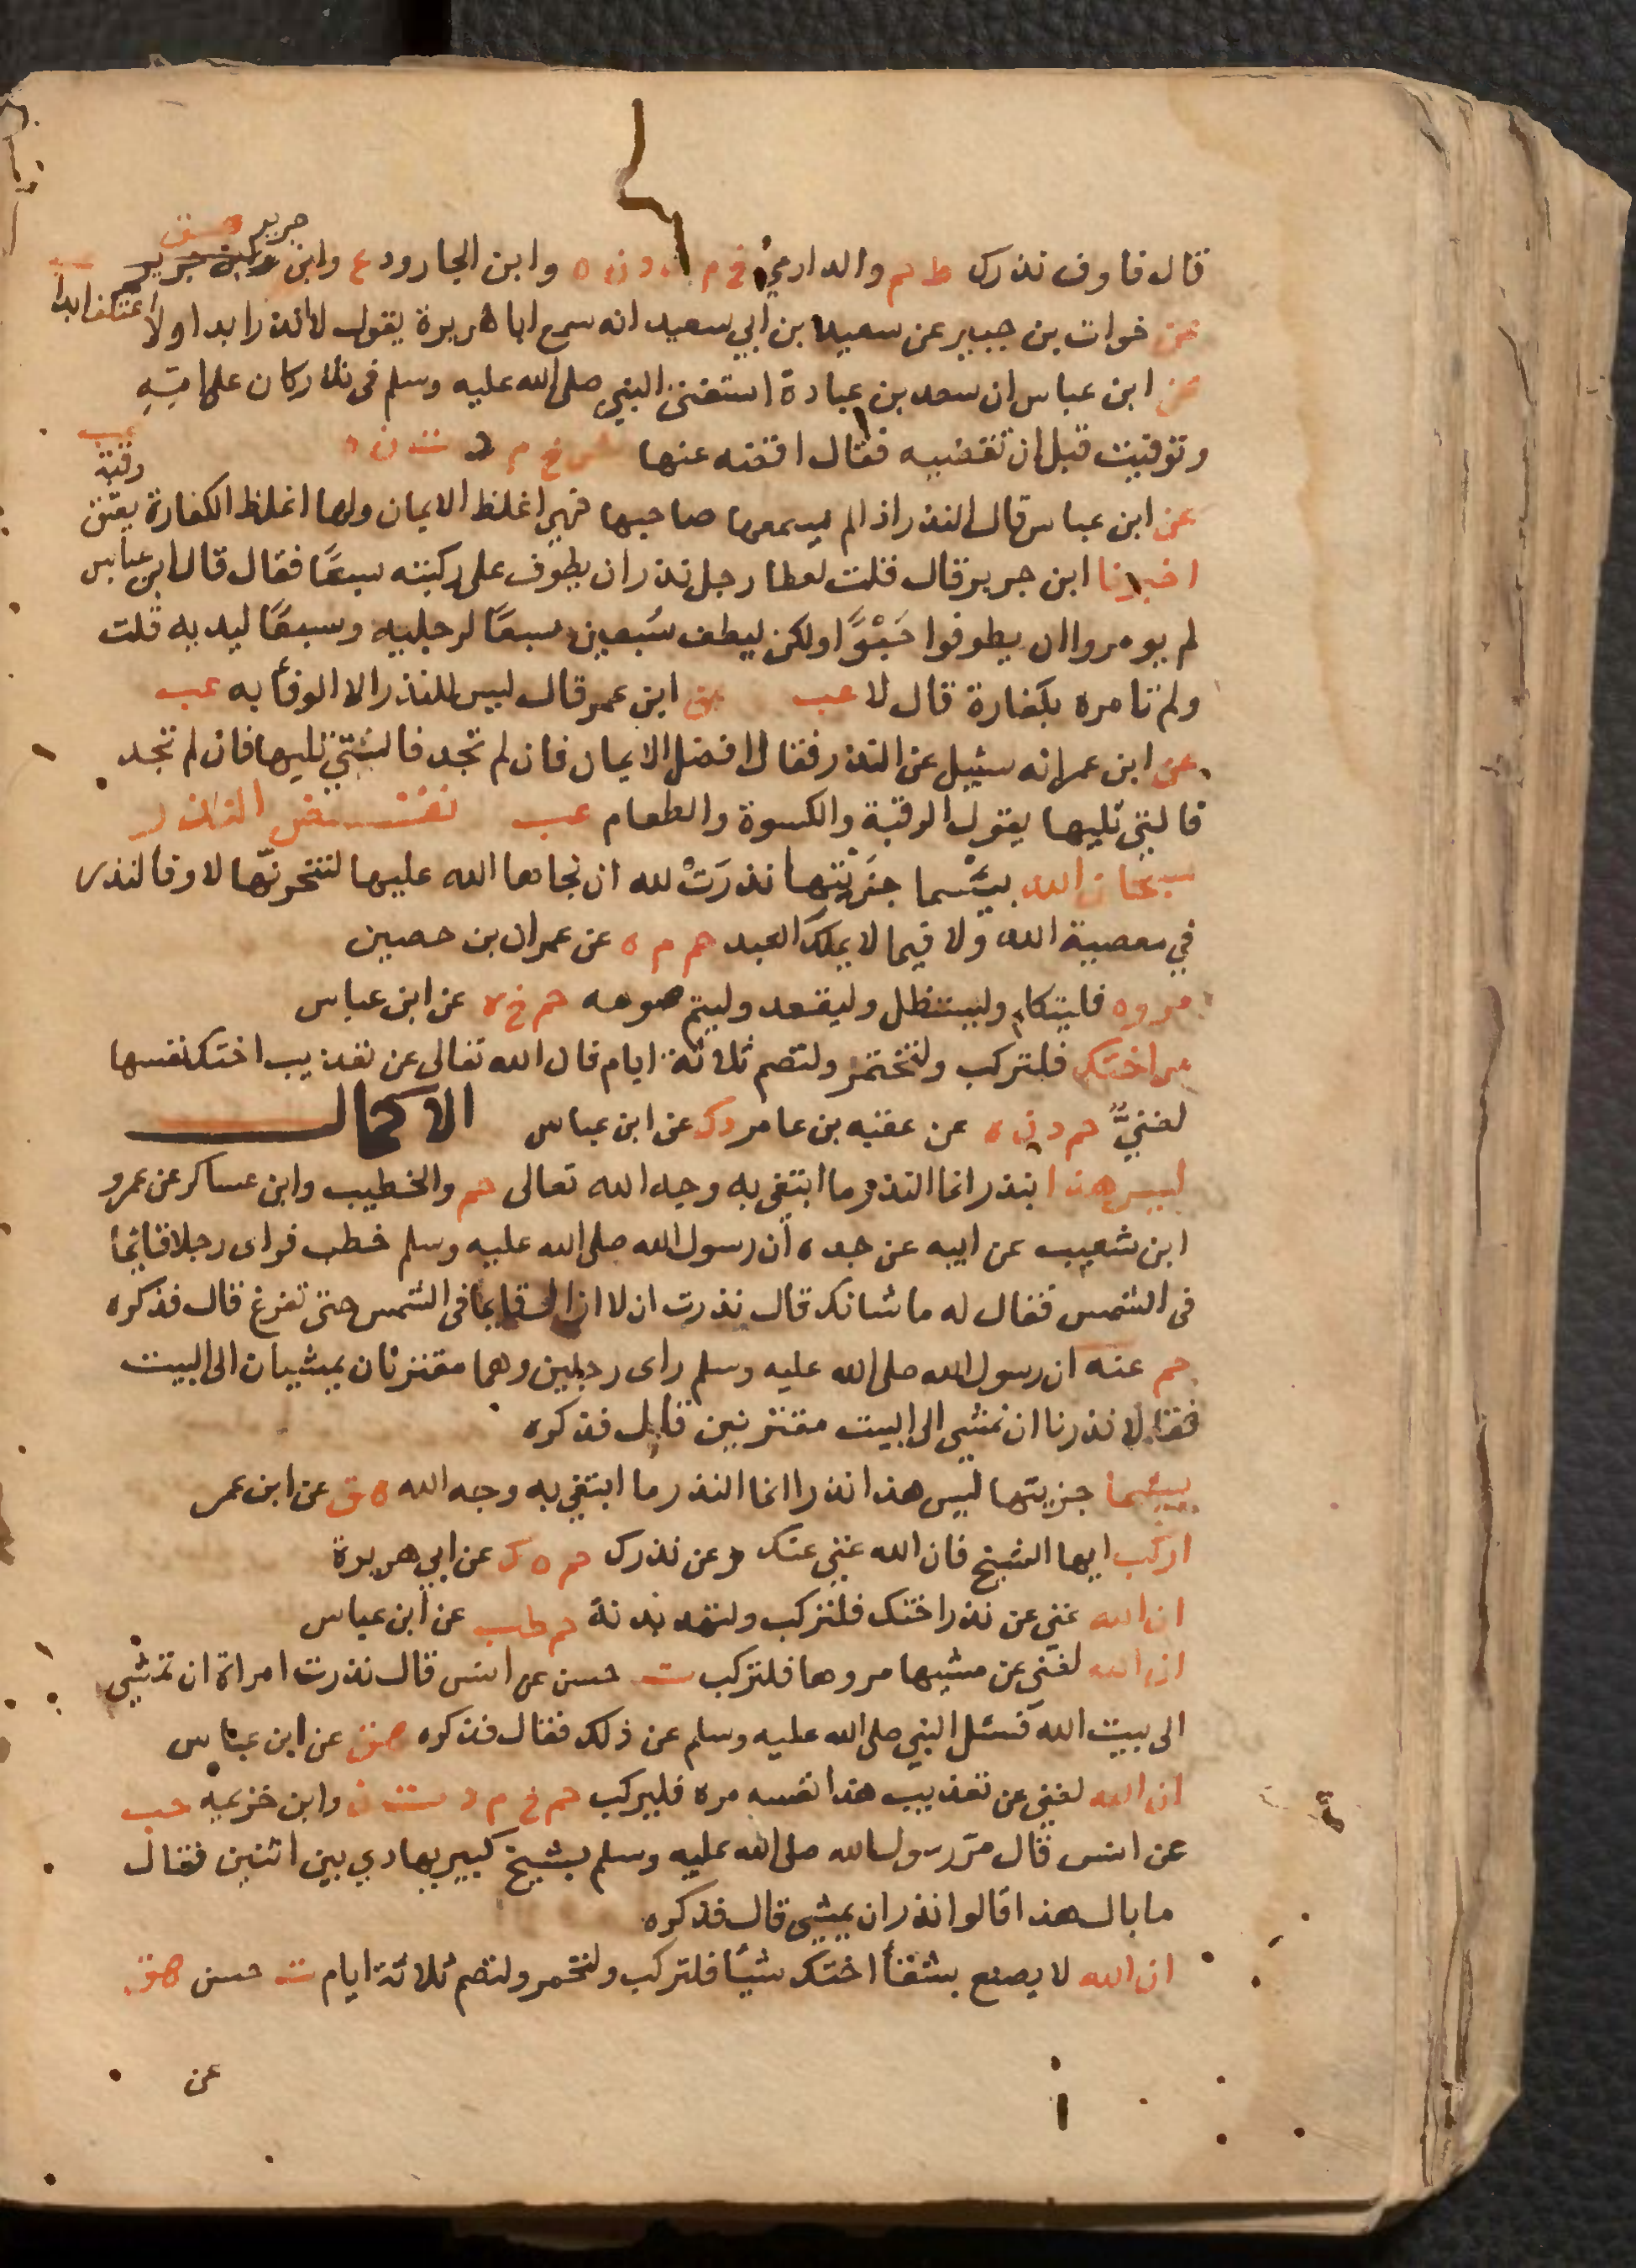 قال فاوف نذرك ط حم والدارمي خ م ت د ن ه وابن الجارود ع وابن جرير هق
عن خوات بن جبير عن سعيد بن ابي سعيد انه سمع ابا هريرة يقول لا انذر ابدا ولا اعتكف ابدا عب
عن ابن عباس ان سعد بن عبادة استفتى النبي صلى الله عليه وسلم فى نذر كان على امه
وتوفيت قبل ان تقضيه فقال اقضه عنها ش خ م د ت ن ه
عن ابن عباس قال النذر اذا لم يسمها صاحبها فهى اغلظ الايمان ولها اغلظ الكفارة يعتق رقبة عب
اخبرنا ابن جرير قال قلت لعطا رجل نذر ان يطوف على ركبته سبعًا فقال قال ابن عباس
لم يومروا ان يطوفوا حَبْوًا ولكن ليطف سُبعين سبعًا لرجليه وسبعًا ليديه قلت
ولم تامره بكفارة قال لا عب عن ابن عمر قال ليس للنذر الا الوفأ به عب
عن ابن عمر انه سئيل عن النذر فقال افضل الايمان فان لم تجد فالتي تليها فان لم تجد
فالتي تليها يقول الرقبة والكسوة والطعام عب نقض النذر
سبحان الله بيئسما جزيتها نذرَتْ لله ان نجاها الله عليها لتنحرنّها لا وفا لنذر
في معصية الله ولا فيما لا يملك العبد حم م ه عن عمران بن حصين
مروه فليتكلم وليستظل وليقعد وليتم صومه حم خ ه عن ابن عباس
مر اختك فلتركب ولتختمر ولتصم ثلاثة ايام فان الله تعالى عن تعذيب اختك نفسها
لغنيٌّ حم د ن ه عن عقبه بن عامر د ك عن ابن عباس الاكمال
ليس هذا بنذر انما النذر ما ابتغى به وجه الله تعالى حم والخطيب وابن عساكر عن عمرو
ابن شعيب عن ابيه عن جده أن رسول الله صلى الله عليه وسلم خطب فراى رجلا قائما
فى الشمس فقال له ما شانك قال نذرت ان لا ازال قايما فى الشمس حتى تفرغ قال فذكره
حم عنه ان رسول الله صلى الله عليه وسلم راى رجلين وهما مقترنان يمشيان الى البيت
فقالا نذرنا ان نمشي الى البيت مقترنين قال فذكره
بيئسما جزيتها ليس هذا نذرا انما النذر ما ابتغي به وجه الله هق عن ابن عمر
اركب ايها الشيخ فان الله غني عنك وعن نذرك حم ه ك عن ابي هريرة
ان الله غني عن نذر اختك فلتركب ولتهد بدنة حم طب عن ابن عباس
ان الله لغني عن مشيها مروها فلتركب ت حسن عن انس قال نذرت امراة ان تمشي
الى بيت الله فسئل النبي صلى الله عليه وسلم عن ذلك فقال فذكره هق عن ابن عباس
ان الله لغني عن تعذيب هذا نفسه مره فليركب حم خ م د ت ن وابن خزيمه حب
عن انس قال مر رسول الله صلى الله عليه وسلم بشيخ كبير يهادي بين اثنين فقال
ما بال هذا قالوا نذر ان يمشي قال فذكره
ان الله لا يصنع بشقأ اختك شيأ فلتركب ولتختمر ولتصم ثلاثة ايام ت حسن هق
عن